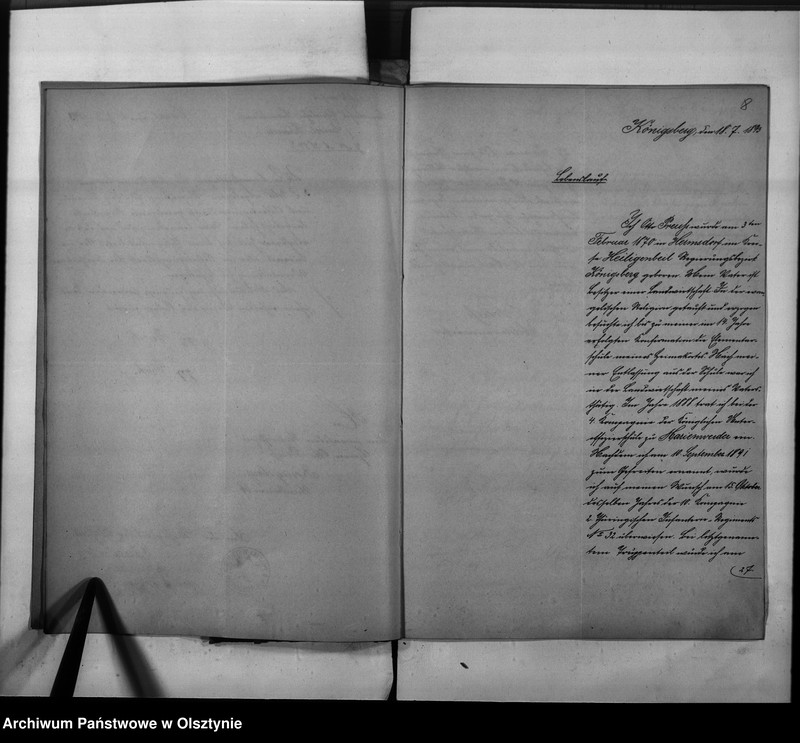 8
Königsberg, den 18. 7. 1893
Lebenslauf.
Ich Otto Preuß wurde am 3ten
Februar 1870 in Hermsdorf im Krei-
se Heiligenbeil Regierungsbezirk
Königsberg geboren. Mein Vater ist
Besitzer einer Landwirtschaft. In der evan-
gelischen Religion getauft und erzogen
besuchte ich bis zu meiner im 14. Jahre
erfolgten Konfirmation die Elementar-
schule meines Heimatortes. Nach mei-
ner Entlassung aus der Schule war ich
in der Landwirtschaft meines Vaters
thätig. Im Jahre 1888 trat ich bei der
4. Kompagnie der Königlichen Unter-
offizierschule zu Marienwerder ein.
Nachdem ich am 10. September 1891
zum Gefreiten ernannt, wurde
ich auf meinen Wunsch am 15. Oktober
desselben Jahres der 10. Kompagnie
2 Thüringischen Infanterie-Regiments
No 32 überwiesen. Bei letztgenann-
tem Truppenteil wurde ich am
27.
Archiwum Państwowe w Olsztynie